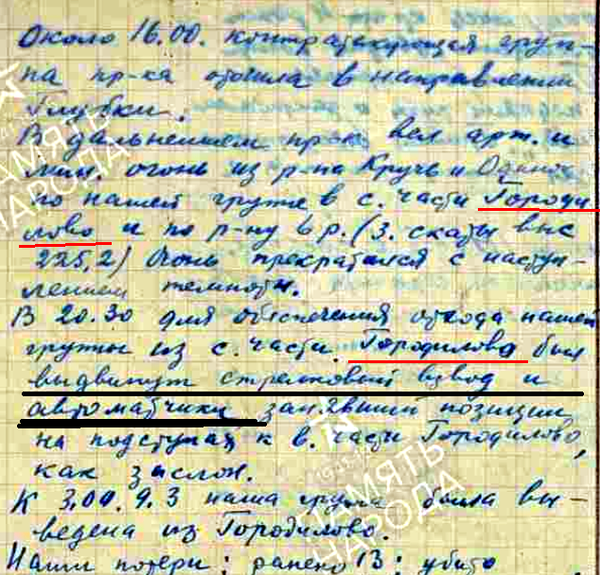 Около 16.00. контратакующая груп-
па пр-ка отошла в направлении
Глубки.
В дальнейшем пр-к вел арт. и
мин. огонь из р-на Кручь и
по нашей группе в с. части Городи
лово и по р-ну 6 р. (З. скаты выс
225,2) Огонь прекратился с наступ-
лением темноты.
В 20.30 для обеспечения отхода нашей
группы из с. части Городилова был
выдвинут стрелковый взвод и
автоматчики занявший позиции
на подступах к в. части Городилово,
как заслон.
К 3.00. 9.3 наша группа была вы-
ведена из Городилово.
Наши потери: ранено 13: убито
ПАМЯТЬ
НАРОДА
ПАМЯТЬ
НАРОДА